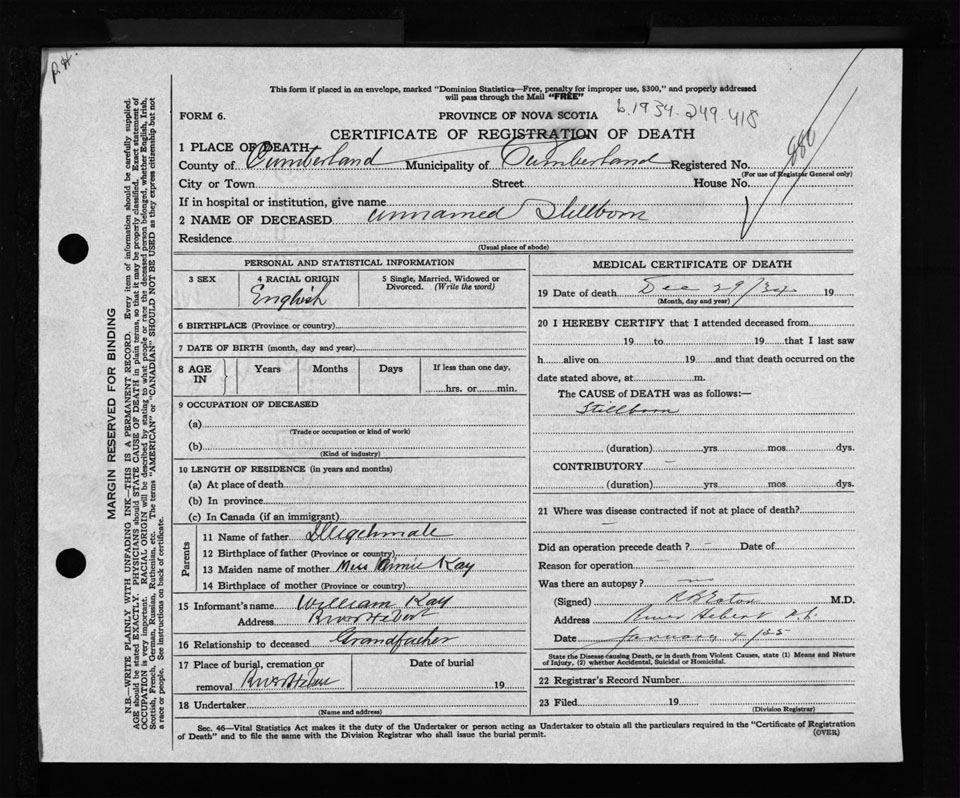 P.H.
This form if placed in an envelope, marked "Dominion Statistics—Free, penalty for improper use, $300," and properly addressed
will pass through the Mail "FREE"
b.1934.249.418
FORM 6.
PROVINCE OF NOVA SCOTIA
CERTIFICATE OF REGISTRATION OF DEATH
880
1 PLACE OF DEATH
County of Cumberland Municipality of Cumberland Registered No.
(For use of Registrar General only)
City or Town Street House No.
If in hospital or institution, give name
2 NAME OF DECEASED unnamed Stillborn
Residence
(Usual place of abode)
PERSONAL AND STATISTICAL INFORMATION
3 SEX
4 RACIAL ORIGIN
English
5 Single, Married, Widowed or
Divorced. (Write the word)
6 BIRTHPLACE (Province or country)
7 DATE OF BIRTH (month, day and year)
8 AGE
IN
Years Months Days If less than one day,
hrs. or min.
9 OCCUPATION OF DECEASED
(a)
(Trade or occupation or kind of work)
(b)
(Kind of industry)
10 LENGTH OF RESIDENCE (in years and months)
(a) At place of death
(b) In province
(c) In Canada (if an immigrant)
Parents
11 Name of father Illegitimate
12 Birthplace of father (Province or country)
13 Maiden name of mother Miss Annie Kay
14 Birthplace of mother (Province or country)
15 Informant's name William Kay
Address River Hebert
16 Relationship to deceased Grandfather
17 Place of burial, cremation or
removal River Hebert
Date of burial
19
18 Undertaker
(Name and address)
MEDICAL CERTIFICATE OF DEATH
19 Date of death Dec 29/34 19
(Month, day and year)
20 I HEREBY CERTIFY that I attended deceased from
19 to 19 that I last saw
h alive on 19 and that death occurred on the
date stated above, at m.
The CAUSE of DEATH was as follows:—
Stillborn
(duration) yrs mos dys.
CONTRIBUTORY —
(duration) yrs. mos. dys.
21 Where was disease contracted if not at place of death?
Did an operation precede death? – Date of
Reason for operation –
Was there an autopsy? no
(Signed) R B Eaton M.D.
Address River Hebert N.S.
Date January 4/35
State the Disease causing Death, or in death from Violent Causes, state (1) Means and Nature
of Injury, (2) whether Accidental, Suicidal or Homicidal.
22 Registrar's Record Number
23 Filed 19
(Division Registrar)
Sec. 46—Vital Statistics Act makes it the duty of the Undertaker or person acting as Undertaker to obtain all the particulars required in the "Certificate of Registration
of Death" and to file the same with the Division Registrar who shall issue the burial permit.
(OVER)
MARGIN RESERVED FOR BINDING
N.B.—WRITE PLAINLY WITH UNFADING INK—THIS IS A PERMANENT RECORD. Every item of information should be carefully supplied.
AGE should be stated EXACTLY. PHYSICIANS should STATE CAUSE OF DEATH in plain terms, so that it may be properly classified. Exact statement of
OCCUPATION is very important. RACIAL ORIGIN will be described by stating to what people or race the deceased person belonged, whether English, Irish,
Scottish, French, German, Russian, Ruthenian, etc. The terms "AMERICAN" or "CANADIAN" SHOULD NOT BE USED as they express citizenship but not
a race or people. See instructions on back of certificate.